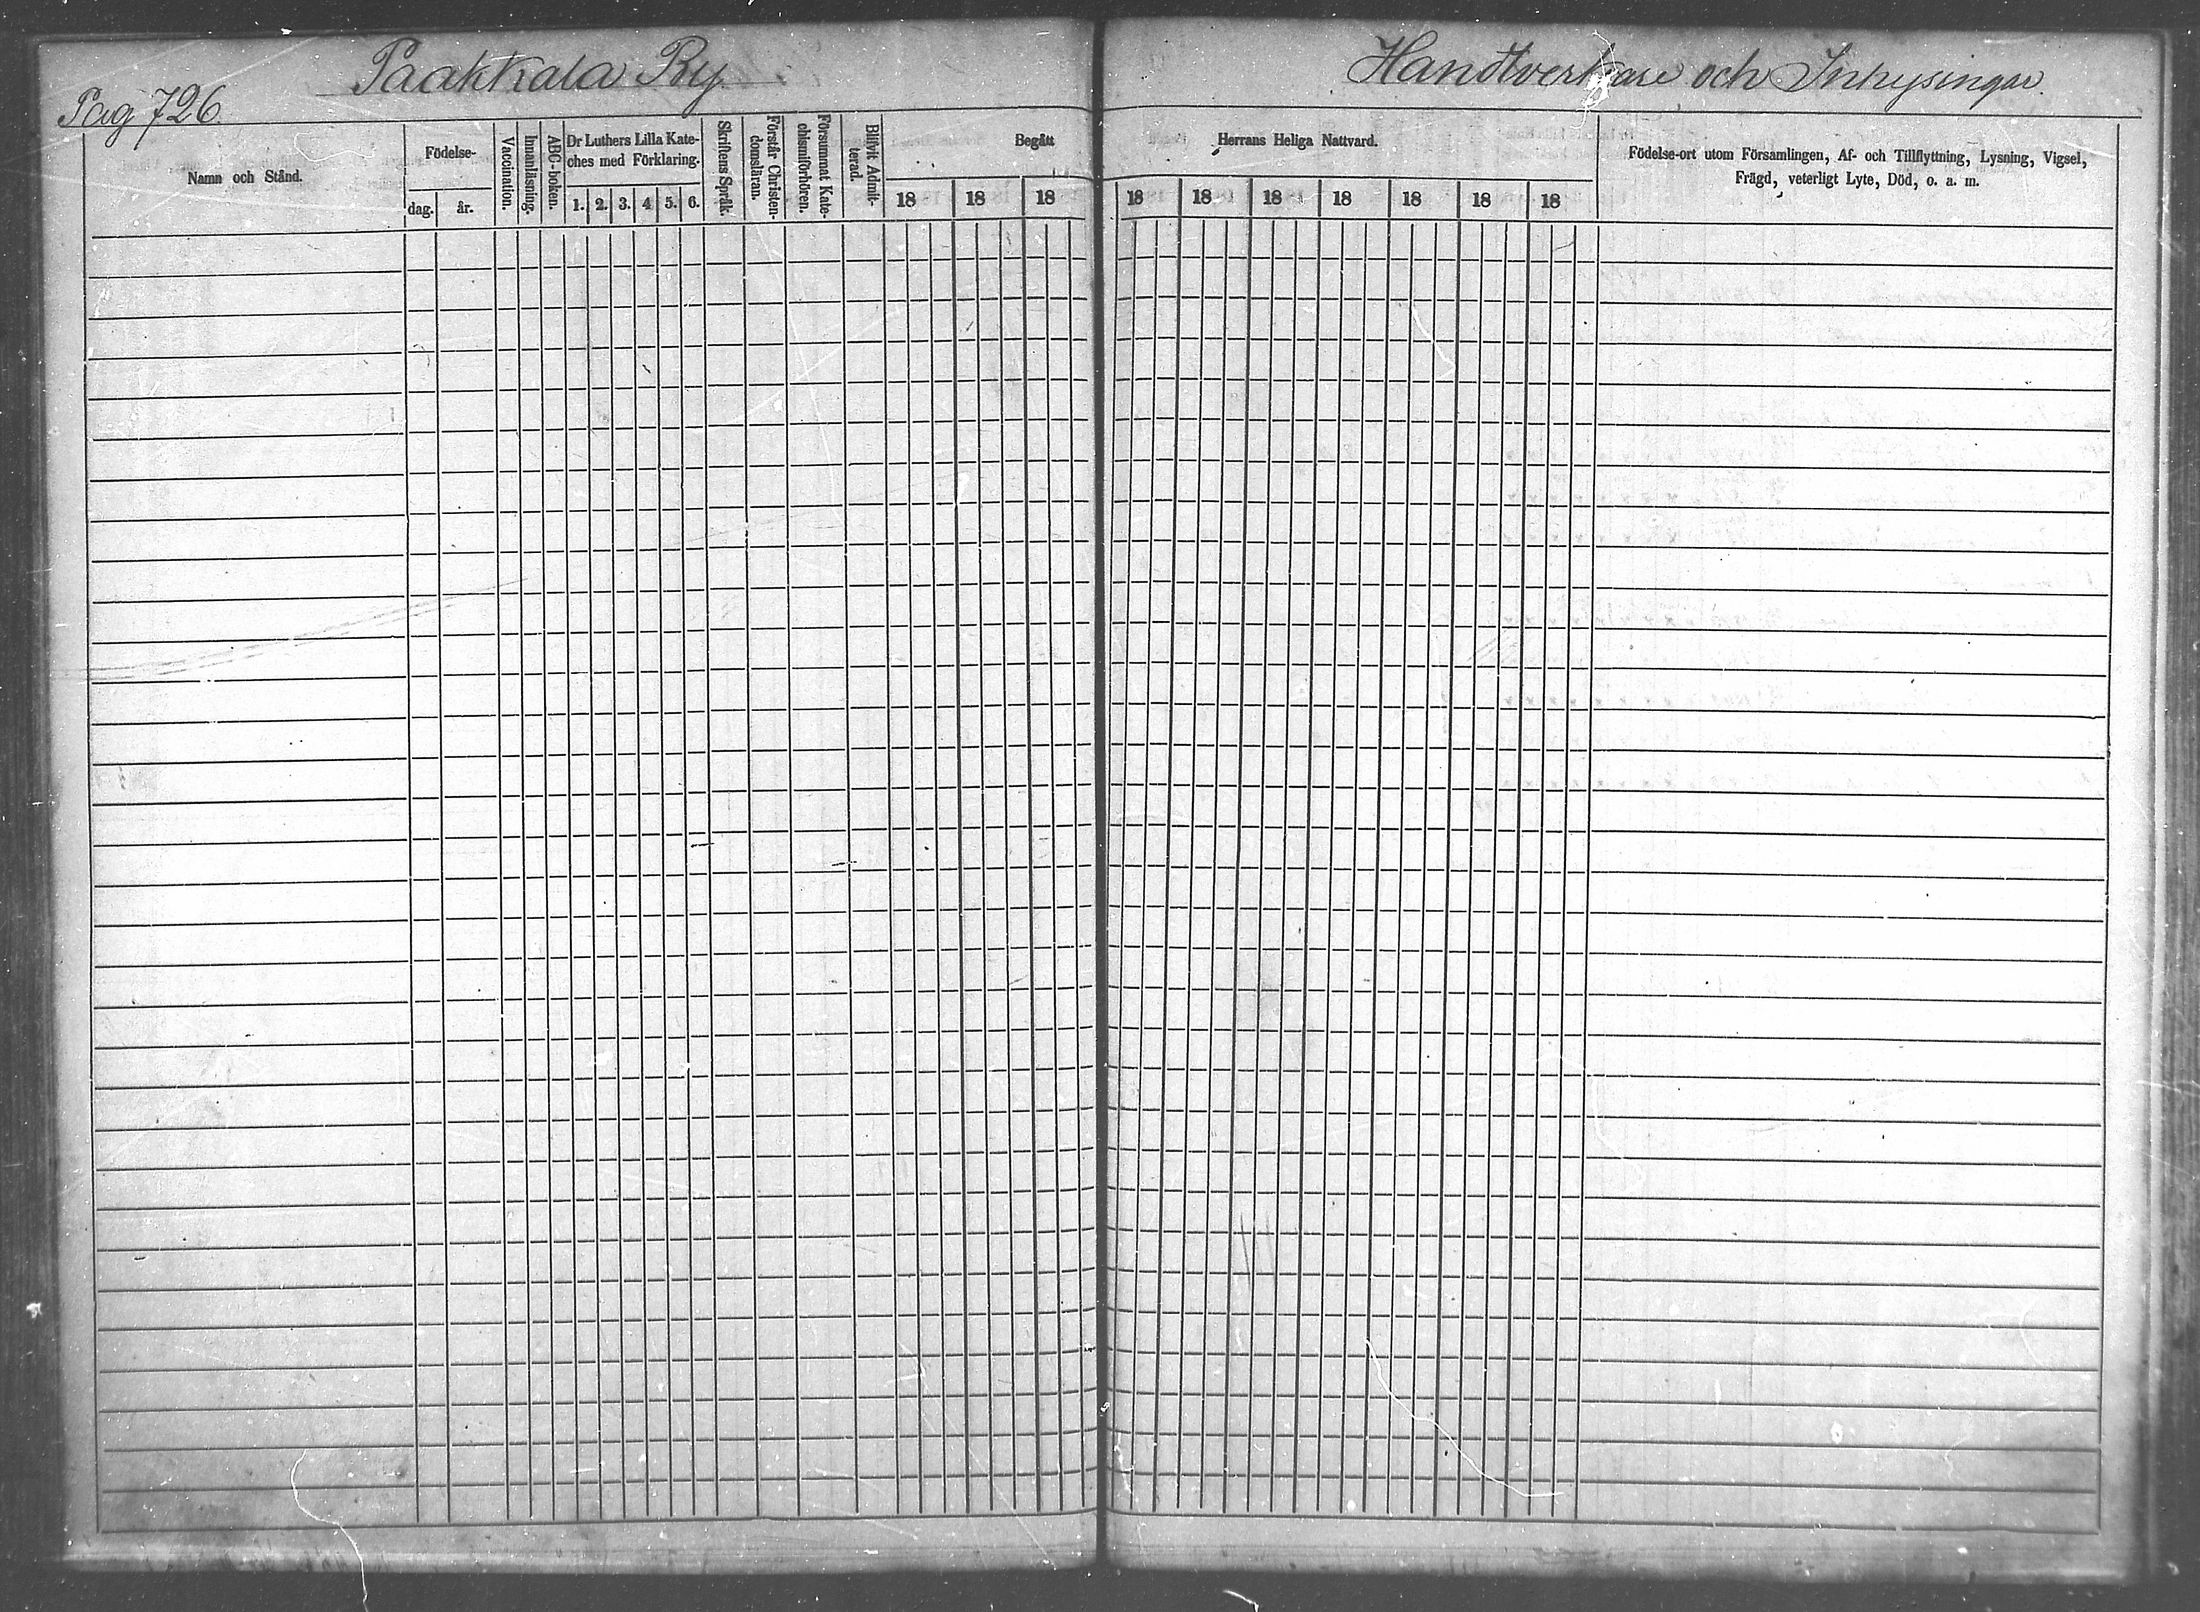 Paakkala By. Handtverkare och Inhysingar.
Pag 726.
Namn och Stånd.
Födelse-
dag. år.
Vaccination.
Innanläsning.
ABC-boken.
Dr Luthers Lilla Kate-
ches med Förklaring.
1. 2. 3. 4 5. 6.
Skriftenes Språk.
Förstår Christen-
domsläran.
Försummat Kate-
chismiförhören.
Blifvit Admit-
terad.
Begått Herrans Heliga Nattvard.
18 18 18 18 18 18 18 18 18 18
Födelse-ort utom Församlingen, Af- och Tillflyttning, Lysning, Vigsel,
Frägd, veterligt Lyte, Död, o. a. m.